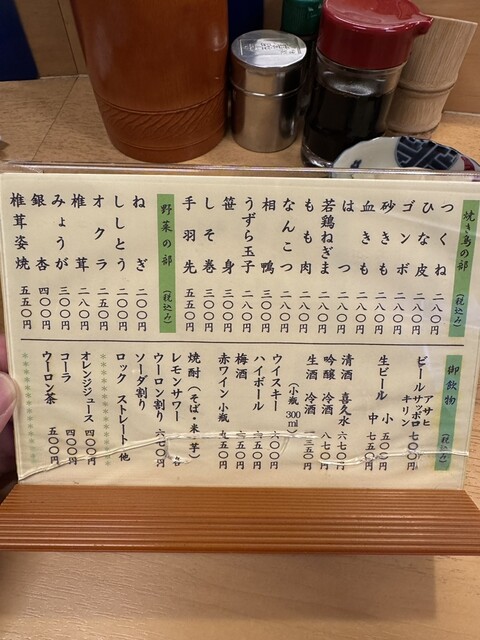 焼き鳥の部 (税込み)
つくね 二八〇円
ひな皮 二八〇円
ゴンボ 二八〇円
砂きも 二八〇円
血きも 二八〇円
はつ 二八〇円
若鶏ねぎま 二八〇円
もも肉 二八〇円
なんこつ 二八〇円
相鴨 三〇〇円
うずら玉子 二八〇円
笹身 三〇〇円
しそ巻 三〇〇円
手羽先 五五〇円
野菜の部 (税込み)
ねぎ 二〇〇円
ししとう 二〇〇円
オクラ 二五〇円
椎茸 二八〇円
みょうが 三〇〇円
銀杏 四〇〇円
椎茸姿焼 五五〇円
御飲物 (税込み)
アサヒ
ビール サッポロ 七〇〇円
キリン
生ビール 小 五〇〇円
中 七五〇円
清酒 喜久水 六七〇円
吟醸 冷酒 八七〇円
生酒 冷酒 一三五〇円
(小瓶 300ml)
ウイスキー 六〇〇円
ハイボール 六五〇円
梅酒 六五〇円
赤ワイン 小瓶 九五〇円
焼酎 (そば・米・芋)
レモンサワー 各
ウーロン割り 円
ソーダ割り
ロック ストレート 他
オレンジジュース 四〇〇円
コーラ 四〇〇円
ウーロン茶 五〇〇円